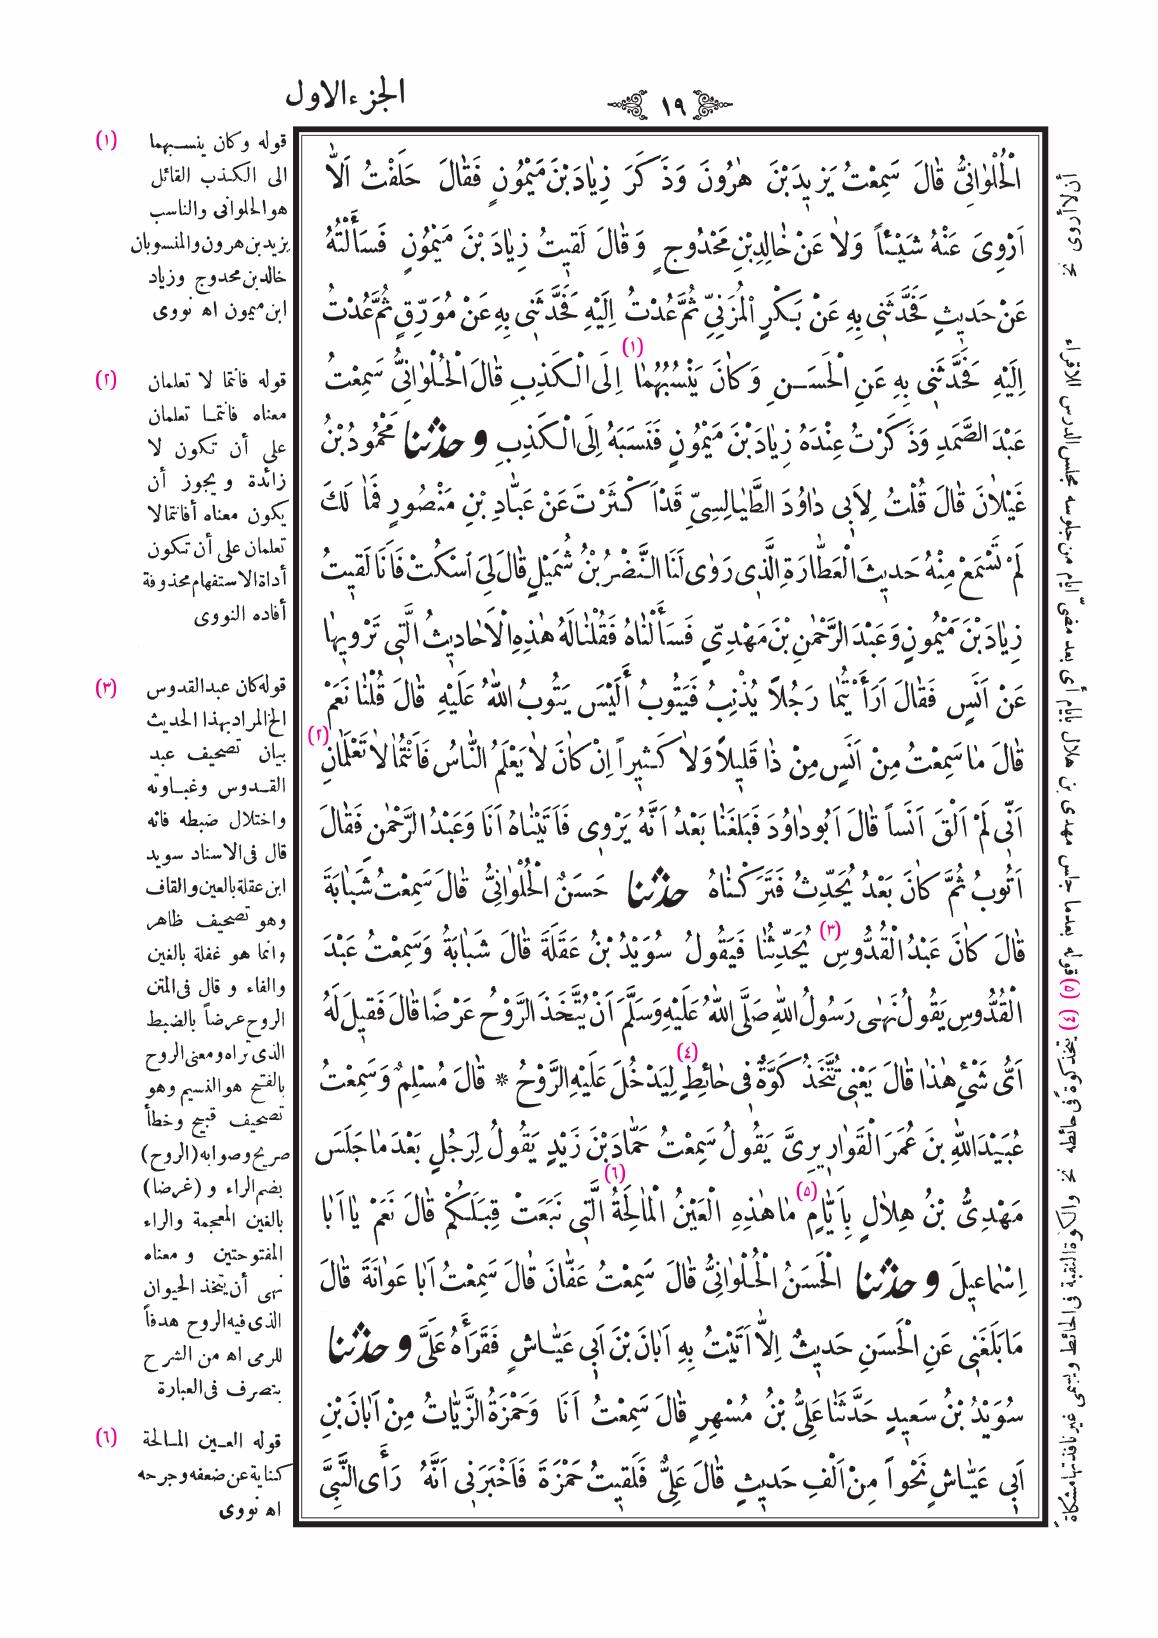 ١٩
الجزء الاول
الْحُلْوَانِيُّ قَالَ سَمِعْتُ يَزِيدَ بْنَ هٰرُونَ وَذَكَرَ زِيَادَ بْنَ مَيْمُونٍ فَقَالَ حَلَفْتُ اَلَّا
اَرْوِيَ عَنْهُ شَيْئاً وَلَا عَنْ خَالِدِ بْنِ مَحْدُوجٍ وَقَالَ لَقِيتُ زِيَادَ بْنَ مَيْمُونٍ فَسَأَلْتُهُ
عَنْ حَدِيثٍ فَحَدَّثَنِي بِهِ عَنْ بَكْرٍ الْمُزَنِيِّ ثُمَّ عُدْتُ اِلَيْهِ فَحَدَّثَنِي بِهِ عَنْ مُوَرِّقٍ ثُمَّ عُدْتُ
اِلَيْهِ فَحَدَّثَنِي بِهِ عَنِ الْحَسَنِ وَكَانَ يَنْسُبُهُمَا (١) اِلَى الْكَذِبِ قَالَ الْحُلْوَانِيُّ سَمِعْتُ
عَبْدَ الصَّمَدِ وَذَكَرْتُ عِنْدَهُ زِيَادَ بْنَ مَيْمُونٍ فَنَسَبَهُ اِلَى الْكَذِبِ و حدثنا مَحْمُودُ بْنُ
غَيْلَانَ قَالَ قُلْتُ لِاَبِي دَاوُدَ الطَّيَالِسِيِّ قَدْ اَكْثَرْتَ عَنْ عَبَّادِ بْنِ مَنْصُورٍ فَمَا لَكَ
لَمْ تَسْمَعْ مِنْهُ حَدِيثَ الْعَطَّارَةِ الَّذِي رَوٰى لَنَا النَّضْرُ بْنُ شُمَيْلٍ قَالَ لِيَ اسْكُتْ فَاَنَا لَقِيتُ
زِيَادَ بْنَ مَيْمُونٍ وَعَبْدَ الرَّحْمٰنِ بْنَ مَهْدِيٍّ فَسَأَلْنَاهُ فَقُلْنَا لَهُ هٰذِهِ الْاَحَادِيثُ الَّتِي تَرْوِيهَا
عَنْ اَنَسٍ فَقَالَ اَرَأَيْتُمَا رَجُلاً يُذْنِبُ فَيَتُوبُ أَلَيْسَ يَتُوبُ اللهُ عَلَيْهِ قَالَ قُلْنَا نَعَمْ
قَالَ مَا سَمِعْتُ مِنْ اَنَسٍ مِنْ ذَا قَلِيلاً وَلَا كَثِيراً اِنْ كَانَ لَا يَعْلَمُ النَّاسُ فَاَنْتُمَا لَا تَعْلَمَانِ (٢)
اَنِّي لَمْ اَلْقَ اَنَساً قَالَ اَبُو دَاوُدَ فَبَلَغَنَا بَعْدُ اَنَّهُ يَرْوِي فَاَتَيْنَاهُ اَنَا وَعَبْدُ الرَّحْمٰنِ فَقَالَ
اَتُوبُ ثُمَّ كَانَ بَعْدُ يُحَدِّثُ فَتَرَكْنَاهُ حدثنا حَسَنٌ الْحُلْوَانِيُّ قَالَ سَمِعْتُ شَبَابَةَ
قَالَ كَانَ عَبْدُ الْقُدُّوسِ (٣) يُحَدِّثُنَا فَيَقُولُ سُوَيْدُ بْنُ عَقَلَةَ قَالَ شَبَابَةُ وَسَمِعْتُ عَبْدَ
الْقُدُّوسِ يَقُولُ نَهٰى رَسُولُ اللهِ صَلَّى اللهُ عَلَيْهِ وَسَلَّمَ اَنْ يُتَّخَذَ الرَّوْحُ عَرْضًا قَالَ فَقِيلَ لَهُ
اَيُّ شَيْءٍ هٰذَا قَالَ يَعْنِي تُتَّخَذُ كَوَّةٌ فِي حَائِطٍ (٤) لِيَدْخُلَ عَلَيْهِ الرَّوْحُ * قَالَ مُسْلِمٌ وَسَمِعْتُ
عُبَيْدَ اللهِ بْنَ عُمَرَ الْقَوَارِيرِيَّ يَقُولُ سَمِعْتُ حَمَّادَ بْنَ زَيْدٍ يَقُولُ لِرَجُلٍ بَعْدَ مَا جَلَسَ
مَهْدِيُّ بْنُ هِلَالٍ بِاَيَّامٍ (٥) مَا هٰذِهِ الْعَيْنُ الْمَالِحَةُ (٦) الَّتِي نَبَعَتْ قِبَلَكُمْ قَالَ نَعَمْ يَا اَبَا
اِسْمَاعِيلَ و حدثنا الْحَسَنُ الْحُلْوَانِيُّ قَالَ سَمِعْتُ عَفَّانَ قَالَ سَمِعْتُ اَبَا عَوَانَةَ قَالَ
مَا بَلَغَنِي عَنِ الْحَسَنِ حَدِيثٌ اِلَّا اَتَيْتُ بِهِ اَبَانَ بْنَ اَبِي عَيَّاشٍ فَقَرَأَهُ عَلَيَّ و حدثنا
سُوَيْدُ بْنُ سَعِيدٍ حَدَّثَنَا عَلِيُّ بْنُ مُسْهِرٍ قَالَ سَمِعْتُ اَنَا وَحَمْزَةُ الزَّيَّاتُ مِنْ اَبَانَ بْنِ
اَبِي عَيَّاشٍ نَحْواً مِنْ اَلْفِ حَدِيثٍ قَالَ عَلِيٌّ فَلَقِيتُ حَمْزَةَ فَاَخْبَرَنِي اَنَّهُ رَأَى النَّبِيَّ
(١) قوله وكان ينسبهما
الى الكذب القائل
هو الحلوانى والناسب
يزيد بن هرون والمنسوبان
خالد بن محدوج وزياد
ابن ميمون اه نووى
(٢) قوله فانتما لا تعلمان
معناه فانتما تعلمان
على أن تكون لا
زائدة ويجوز أن
يكون معناه أفانتما لا
تعلمان على أن تكون
أداة الاستفهام محذوفة
أفاده النووى
(٣) قوله كان عبد القدوس
الخ المراد بهذا الحديث
بيان تصحيف عبد
القدوس وغباوته
واختلال ضبطه فانه
قال فى الاسناد سويد
ابن عقلة بالعين والقاف
وهو تصحيف ظاهر
وانما هو غفلة بالغين
والفاء وقال فى المتن
الروح عرضاً بالضبط
الذى تراه ومعنى الروح
بالفتح هو النسيم وهو
تصحيف قبيح وخطأ
صريح وصوابه (الروح)
بضم الراء و (غرضا)
بالغين المعجمة والراء
المفتوحتين ومعناه
نهى أن يتخذ الحيوان
الذى فيه الروح هدفاً
للرمى اه من الشرح
بتصرف فى العبارة
(٦) قوله العين المالحة
كناية عن ضعفه وجرحه
اه نووى
أن لا أروى نخ
(٥) قوله بعدما جلس مهدى بن هلال بايام أى بعد مضىّ ايام من جلوسه مجلس الدرس للاقراء
(٤) يتخذ كوة فى حائطه نخ والكوة النقبة فى الحائط ويسمى غير نافذتها مشكاة